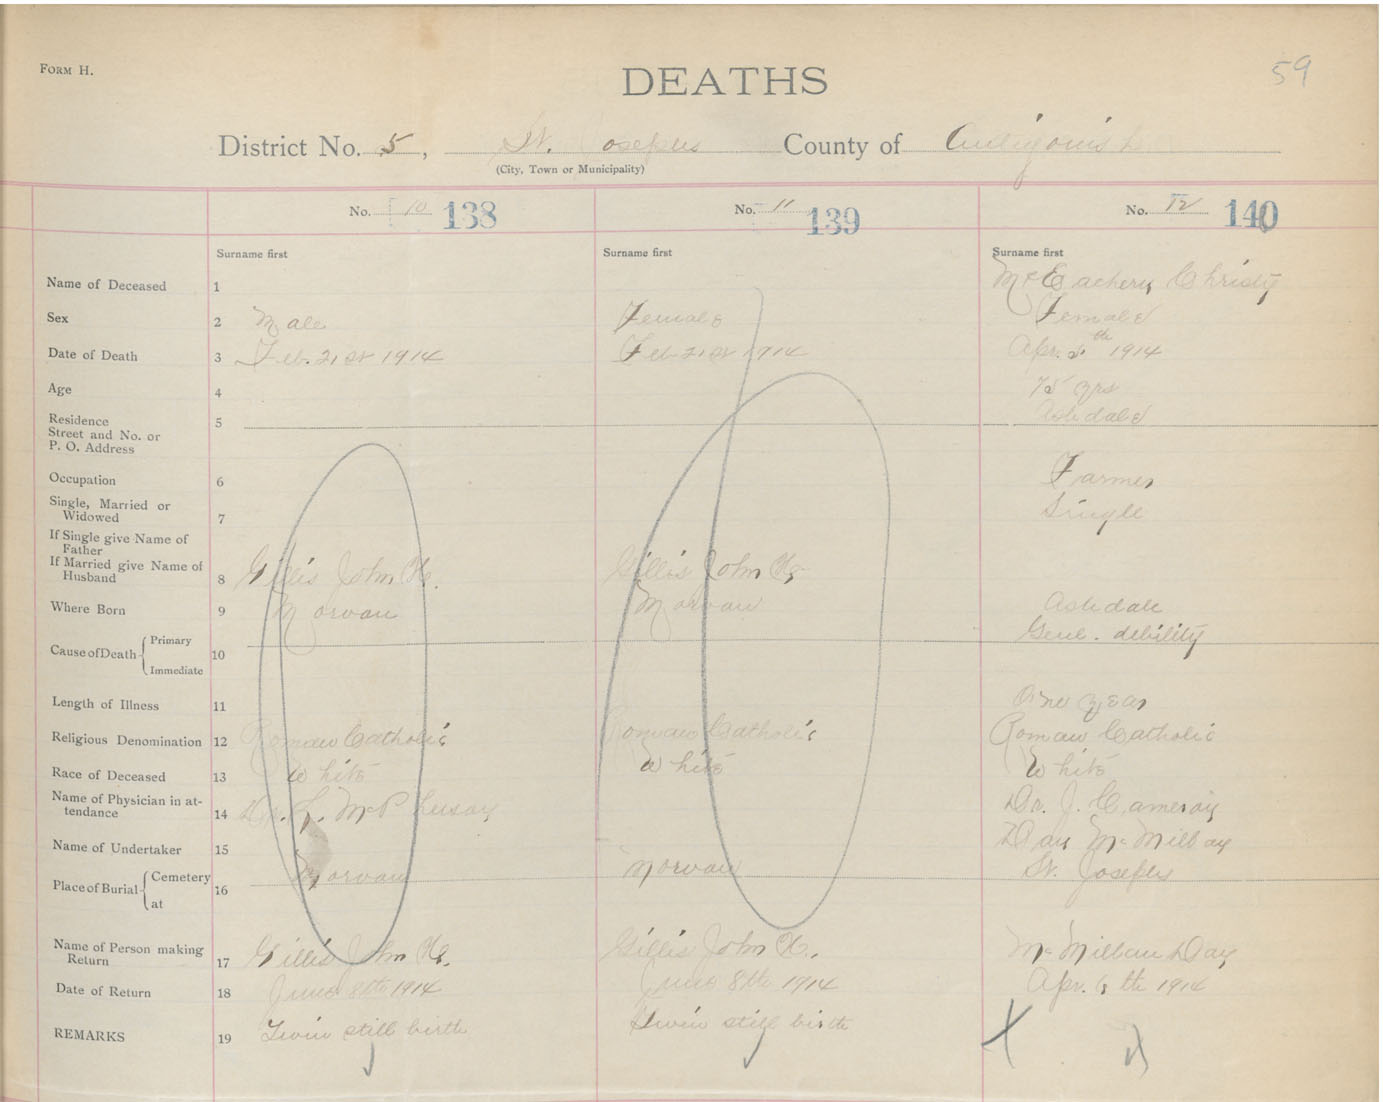 FORM H.
DEATHS
59
District No. 5, St. Josephs County of Antigonish
(City, Town or Municipality)
No. 10 138
No. 11 139
No. 12 140
Surname first
Surname first
Surname first
Name of Deceased 1 McEachern Christy
Sex 2 Male Female Female
Date of Death 3 Feb. 21st 1914 Feb 21st 1914 Apr. 5th 1914
Age 4 75 yrs
Residence
Street and No. or
P. O. Address
5 Ashdale
Occupation 6 Farmer
Single, Married or
Widowed
7 Single
If Single give Name of
Father
If Married give Name of
Husband
8 Gillis John H. Gillis John H.
Where Born 9 Morvan Morvan Ashdale
Cause of Death { Primary
Immediate
10 Genl. debility
Length of Illness 11 One year
Religious Denomination 12 Roman Catholic Roman Catholic Roman Catholic
Race of Deceased 13 White White White
Name of Physician in at-
tendance
14 Dr. Dr. J. Cameron
Name of Undertaker 15 Dan McMillan
Place of Burial { Cemetery
at
16 Morvan Morvan St. Josephs
Name of Person making
Return
17 Gillis John H. Gillis John H. McMillan Dan
Date of Return 18 June 8th 1914 June 8th 1914 Apr. 6th 1914
REMARKS 19 Twin still birth Twin still birth